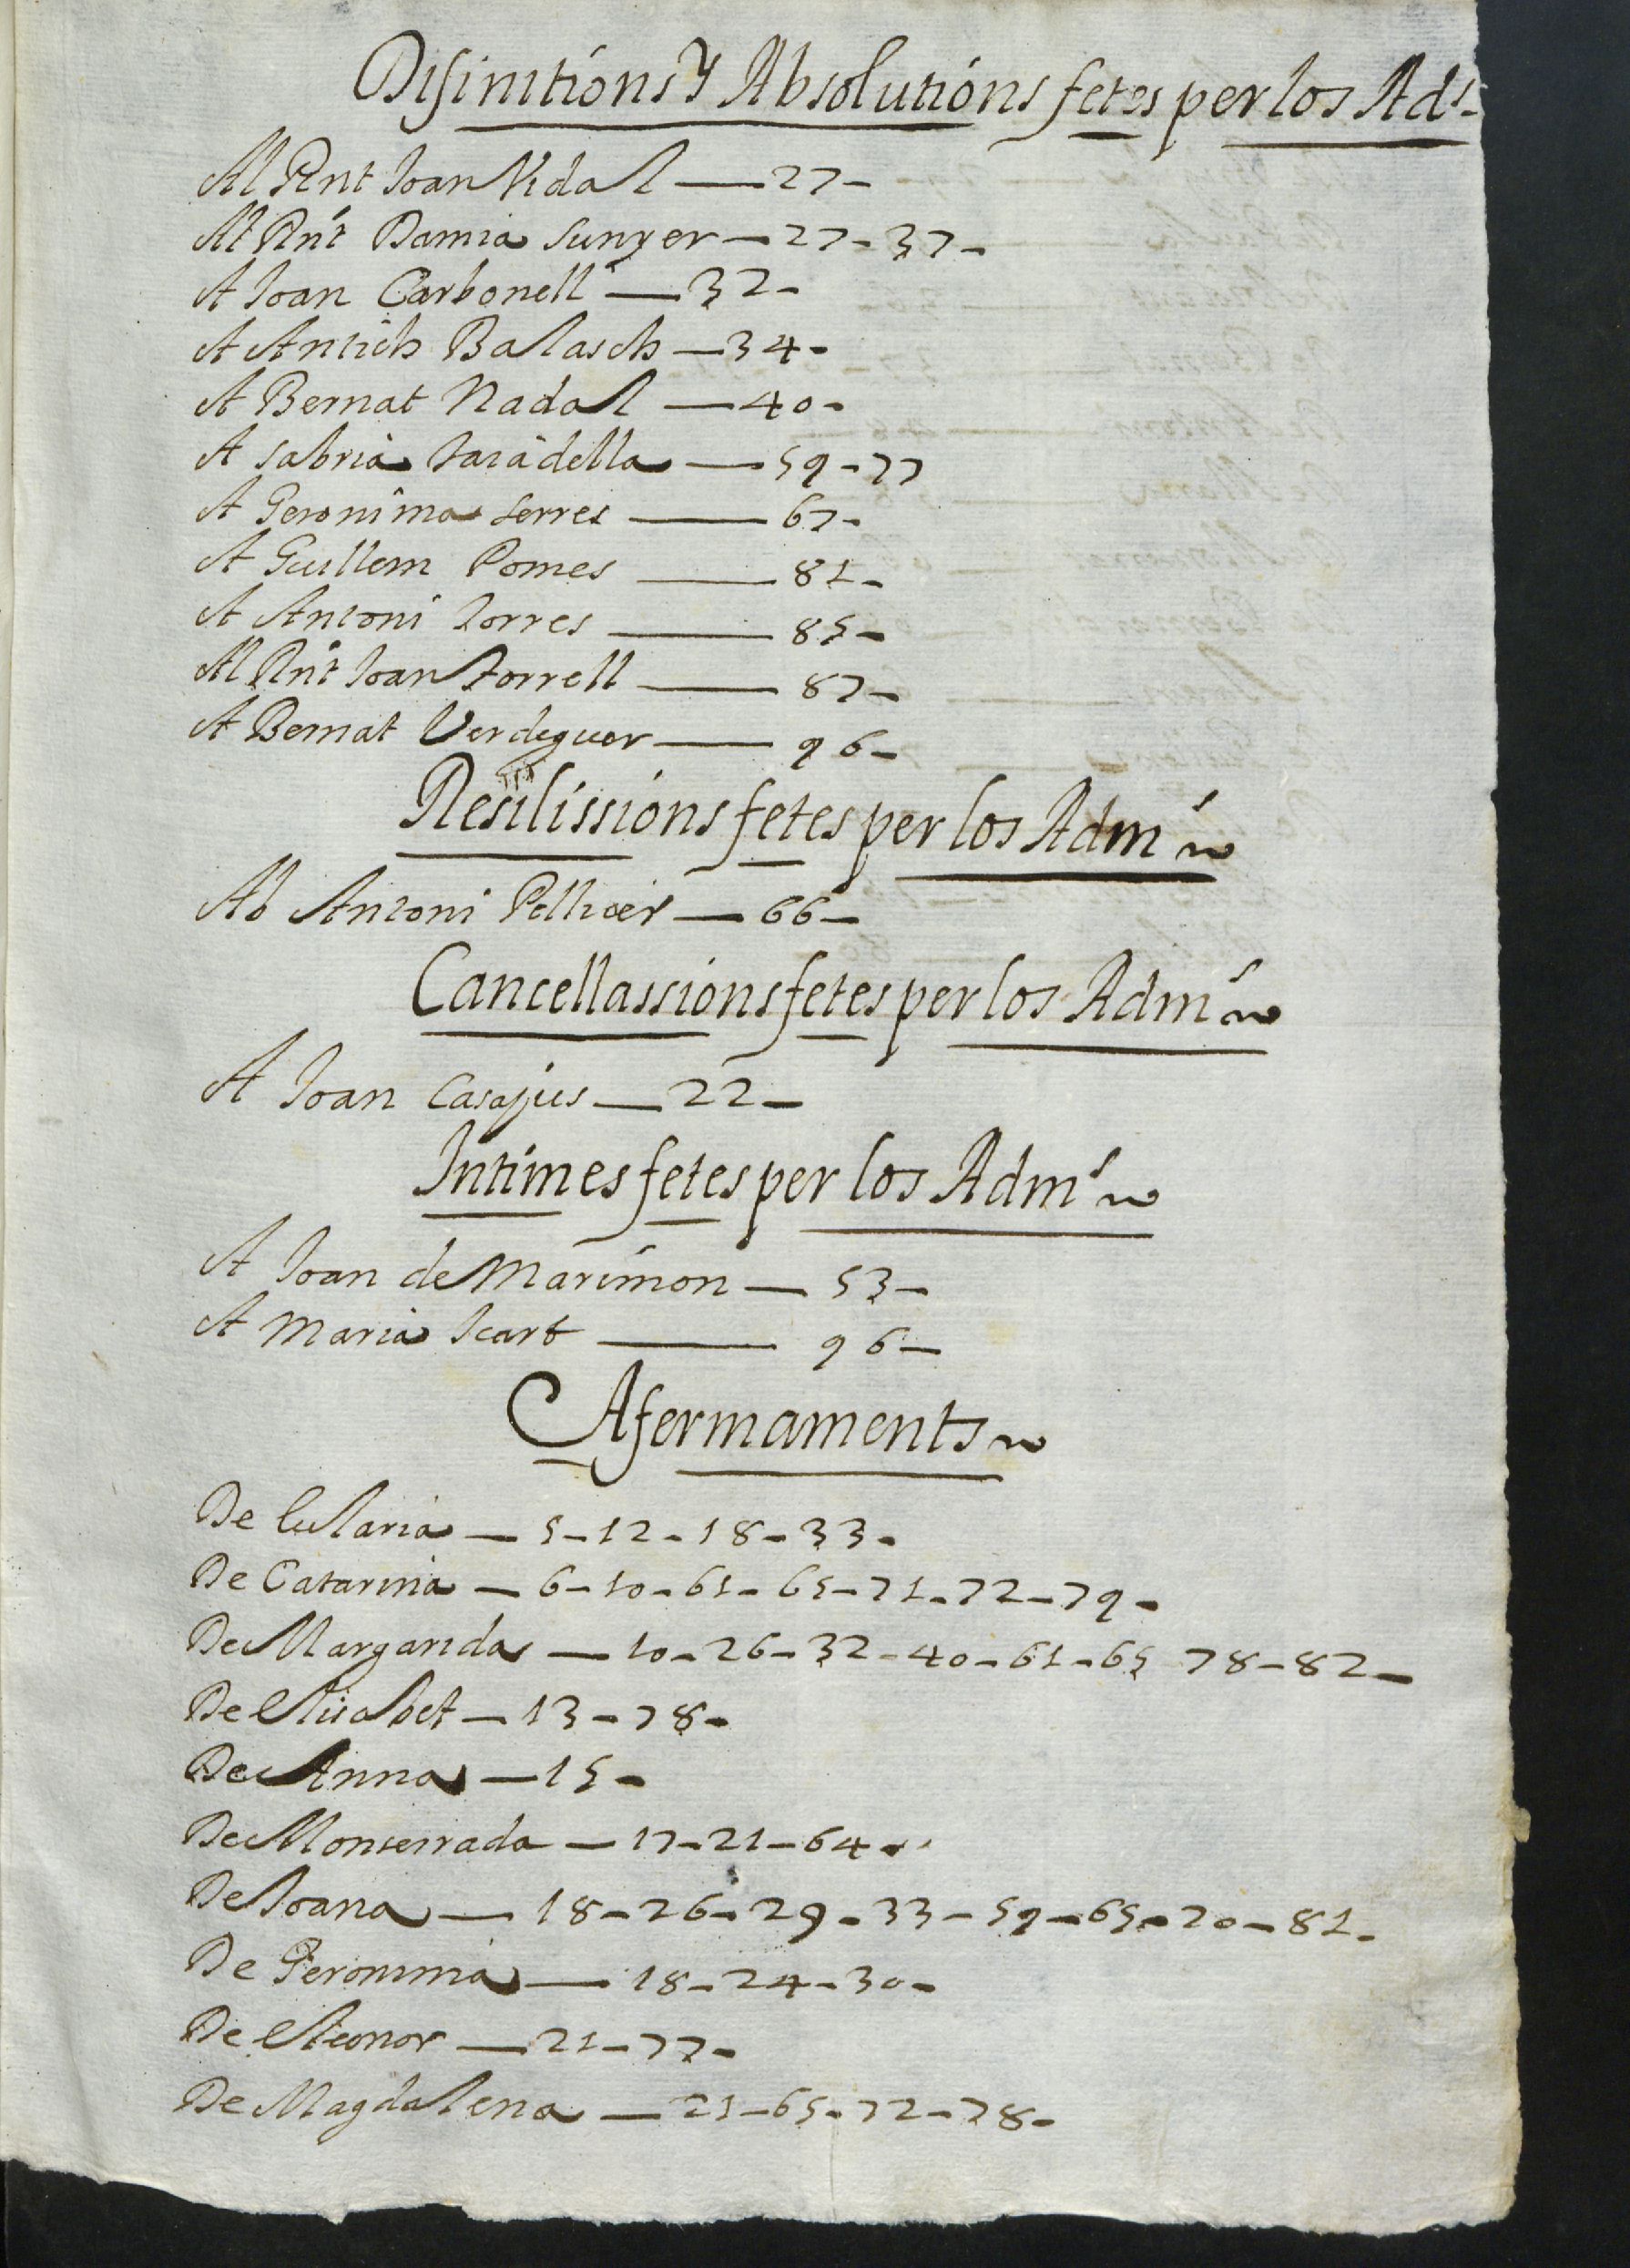 Difinitions y Absolutions fetes per los Ads.
Al Rnt Joan Vidal — 27 -
Al Rnt Damia Sunyer — 27 - 37 -
A Joan Carbonell — 32 -
A Antich Balasch — 34 -
A Bernat Nadal — 40 -
A Sabria Taradella — 59 - 77
A Geronima Serres — 67 -
A Guillem Pomes — 81 -
A Antoni Torres — 85 -
Al Rnt Joan Forrell — 87 -
A Bernat Verdeguer — 96 -
Resilissions fetes per los Adms
Ab Antoni Pellicer — 66 -
Cancellassions fetes per los Adms
A Joan Casajus — 22 -
Intimes fetes per los Adms
A Joan de Marimon — 53 -
A Maria Icart — 96 -
Afermaments
De Eularia — 5 - 12 - 18 - 33 -
De Catarina — 6 - 10 - 61 - 65 - 71 - 72 - 79 -
De Margarida — 10 - 26 - 32 - 40 - 61 - 65 78 - 82 -
De Elisabet — 13 - 78 -
De Anna — 15 -
De Monserrada — 17 - 21 - 64 -
De Joana — 18 - 26 - 29 - 33 - 59 - 65 - 70 - 81 -
De Geronima — 18 - 24 - 30 -
De Eleonor — 21 - 77 -
De Magdalena — 21 - 65 - 72 - 78 -